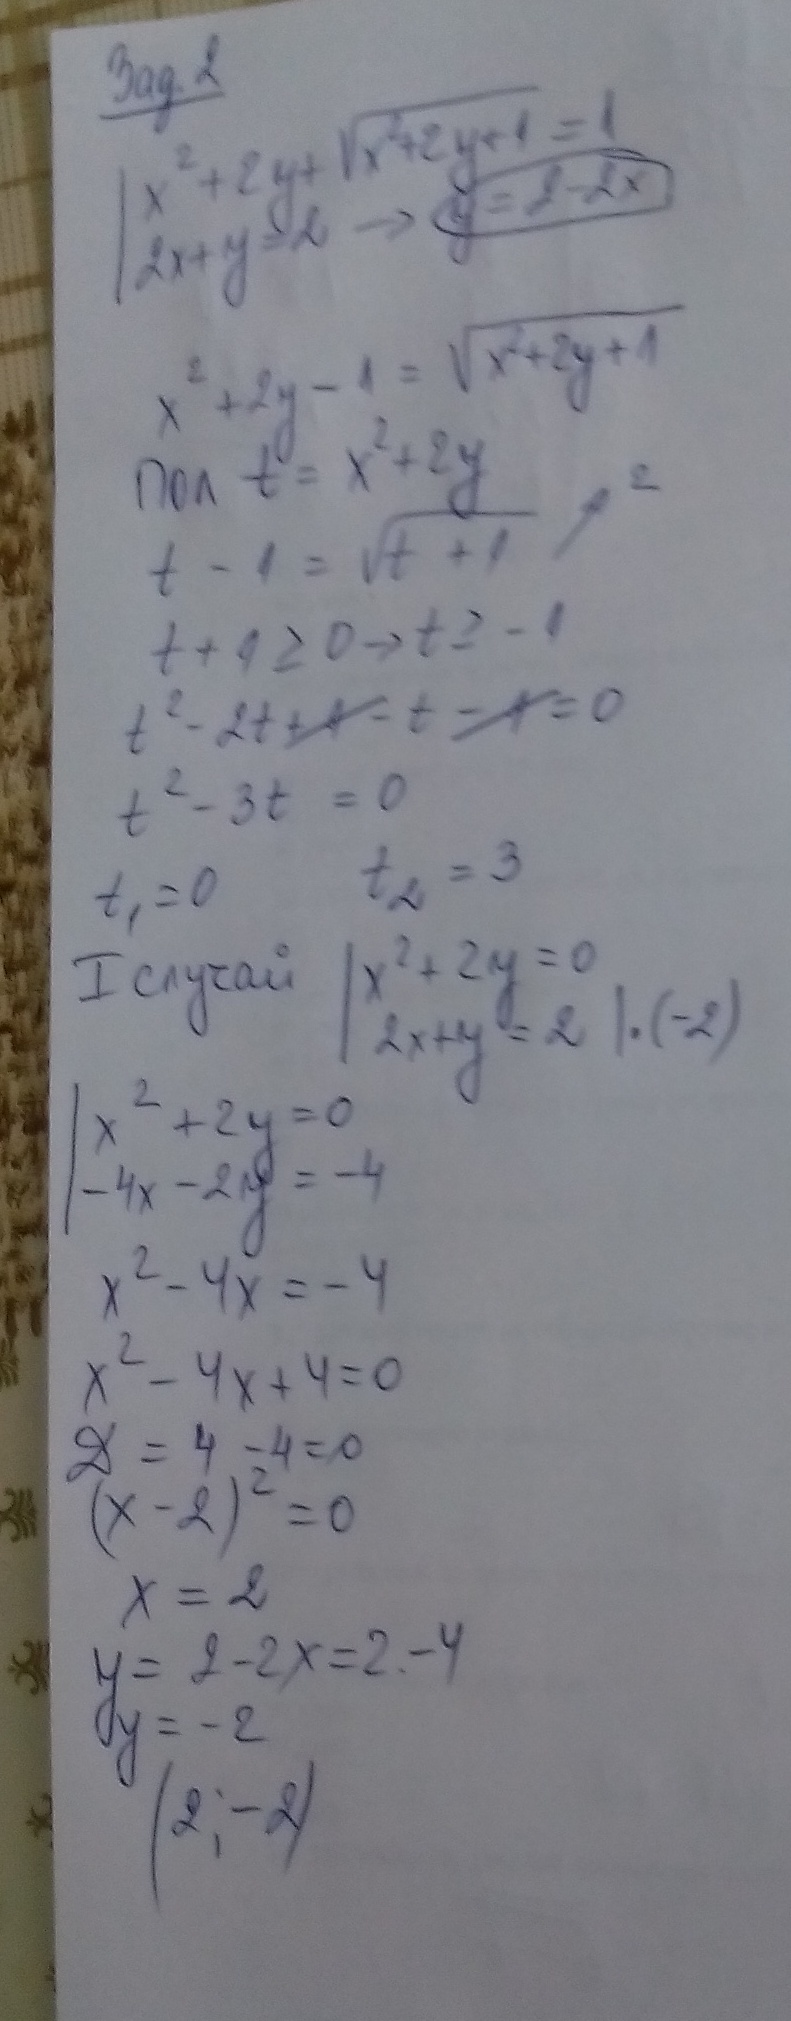 Зад. 2
x² + 2y + √(x²+2y+1) = 1
2x+y=2 → y = 2-2x
x² + 2y - 1 = √(x²+2y+1)
Пол t = x² + 2y
t - 1 = √(t + 1) ↗²
t + 1 ≥ 0 → t ≥ -1
t² - 2t + 1 - t - 1 = 0
t² - 3t = 0
t₁ = 0 t₂ = 3
I случай | x² + 2y = 0
2x+y = 2 |.(-2)
x² + 2y = 0
-4x - 2y = -4
x² - 4x = -4
x² - 4x + 4 = 0
D = 4 - 4 = 0
(x - 2)² = 0
x = 2
y = 2 - 2x = 2.-4
y = -2
(2; -2)